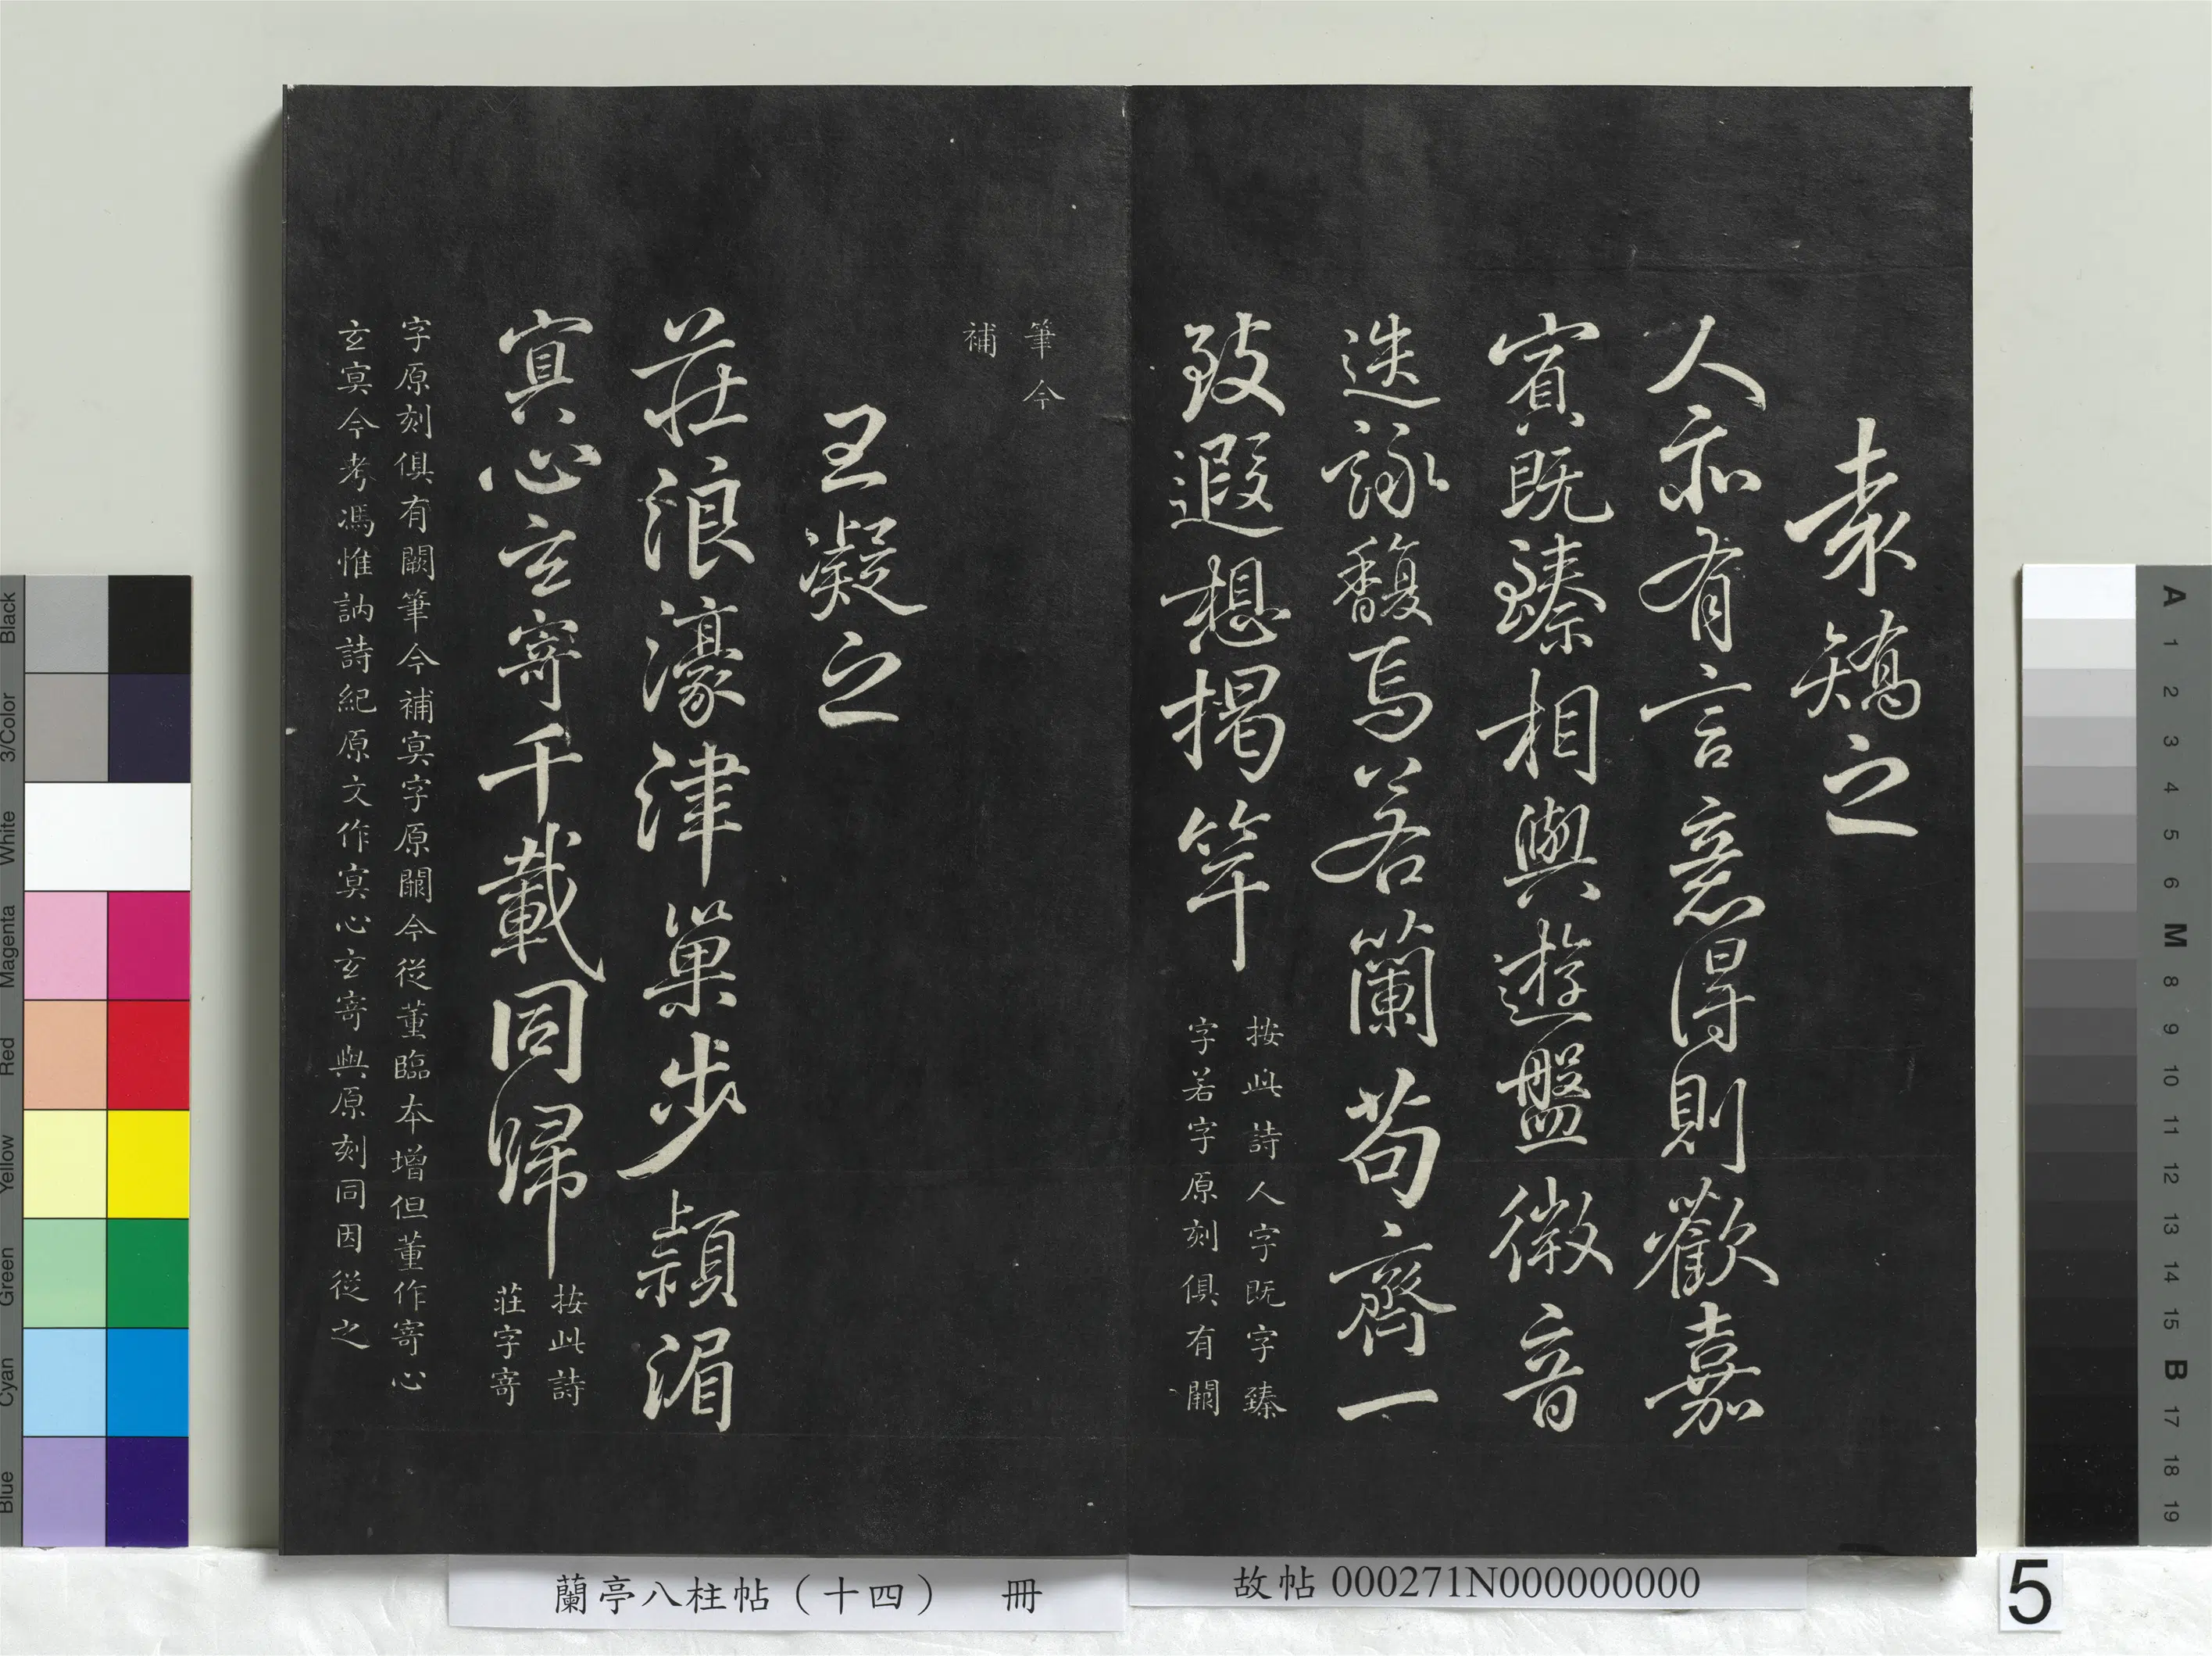 袁矯之
人亦有言意得則歡嘉
賓既臻相與遊盤微音
迭詠馥焉若蘭苟齊一
致遐想揭竿
按此詩人字既字臻
字若字原刻俱有闕
筆今
補
王凝之
莊浪濠津巢步潁湄
冥心玄寄千載同歸
按此詩
莊字寄
字原刻俱有闕筆今補冥字原闕今從董臨本增但董作寄心
玄冥今考馮惟訥詩紀原文作冥心玄寄與原刻同因從之
蘭亭八柱帖（十四） 冊
故帖 000271N000000000
5
Black
3/Color
White
Magenta
Red
Yellow
Green
Cyan
Blue
A
1
2
3
4
5
6
M
8
9
10
11
12
13
14
15
B
17
18
19